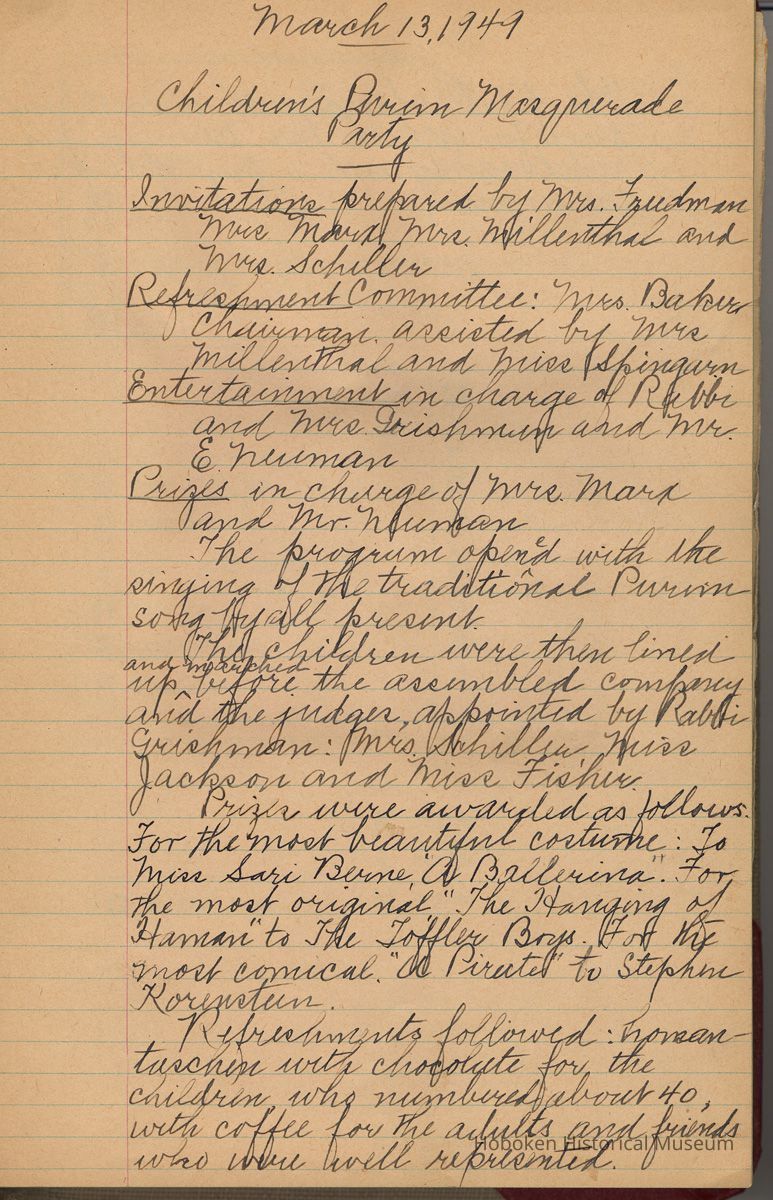 March 13, 1949
Children's Purim Masquerade
Party
Invitations prepared by Mrs. Friedman
Mrs Marx, Mrs. Millenthal and
Mrs. Schiller
Refreshment Committee: Mrs. Baker
Chairman. assisted by Mrs
Millenthal and Miss Spingarn
Entertainment in charge of Rabbi
and Mrs. Grishman and Mr.
E. Neuman
Prizes in charge of Mrs. Marx
and Mr. Neuman
The program open'd with the
singing of the traditional Purim
song by all present.
The children were then lined
and marched
up before the assembled company
and the judges, appointed by Rabbi
Grishman: Mrs. Schiller, Miss
Jackson and Miss Fisher.
Prizes were awarded as follows.
For the most beautiful costume: To
Miss Sari Berne, "A Ballerina". For
the most original, "The Hanging of
Haman" to The Toffler Boys. For the
most comical. "A Pirate" to Stephen
Korenstein.
Refreshments followed: homan-
taschen with chocolate for the
children, who numbered about 40,
with coffee for the adults and friends
who were well represented.
Hoboken Historical Museum